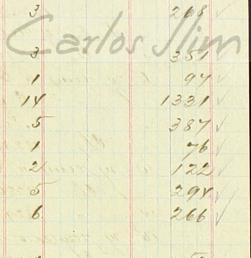 3 268
Carlos Slim
3 351
1 94
14 1331
5 387
1 76
2 122
5 294
6 266